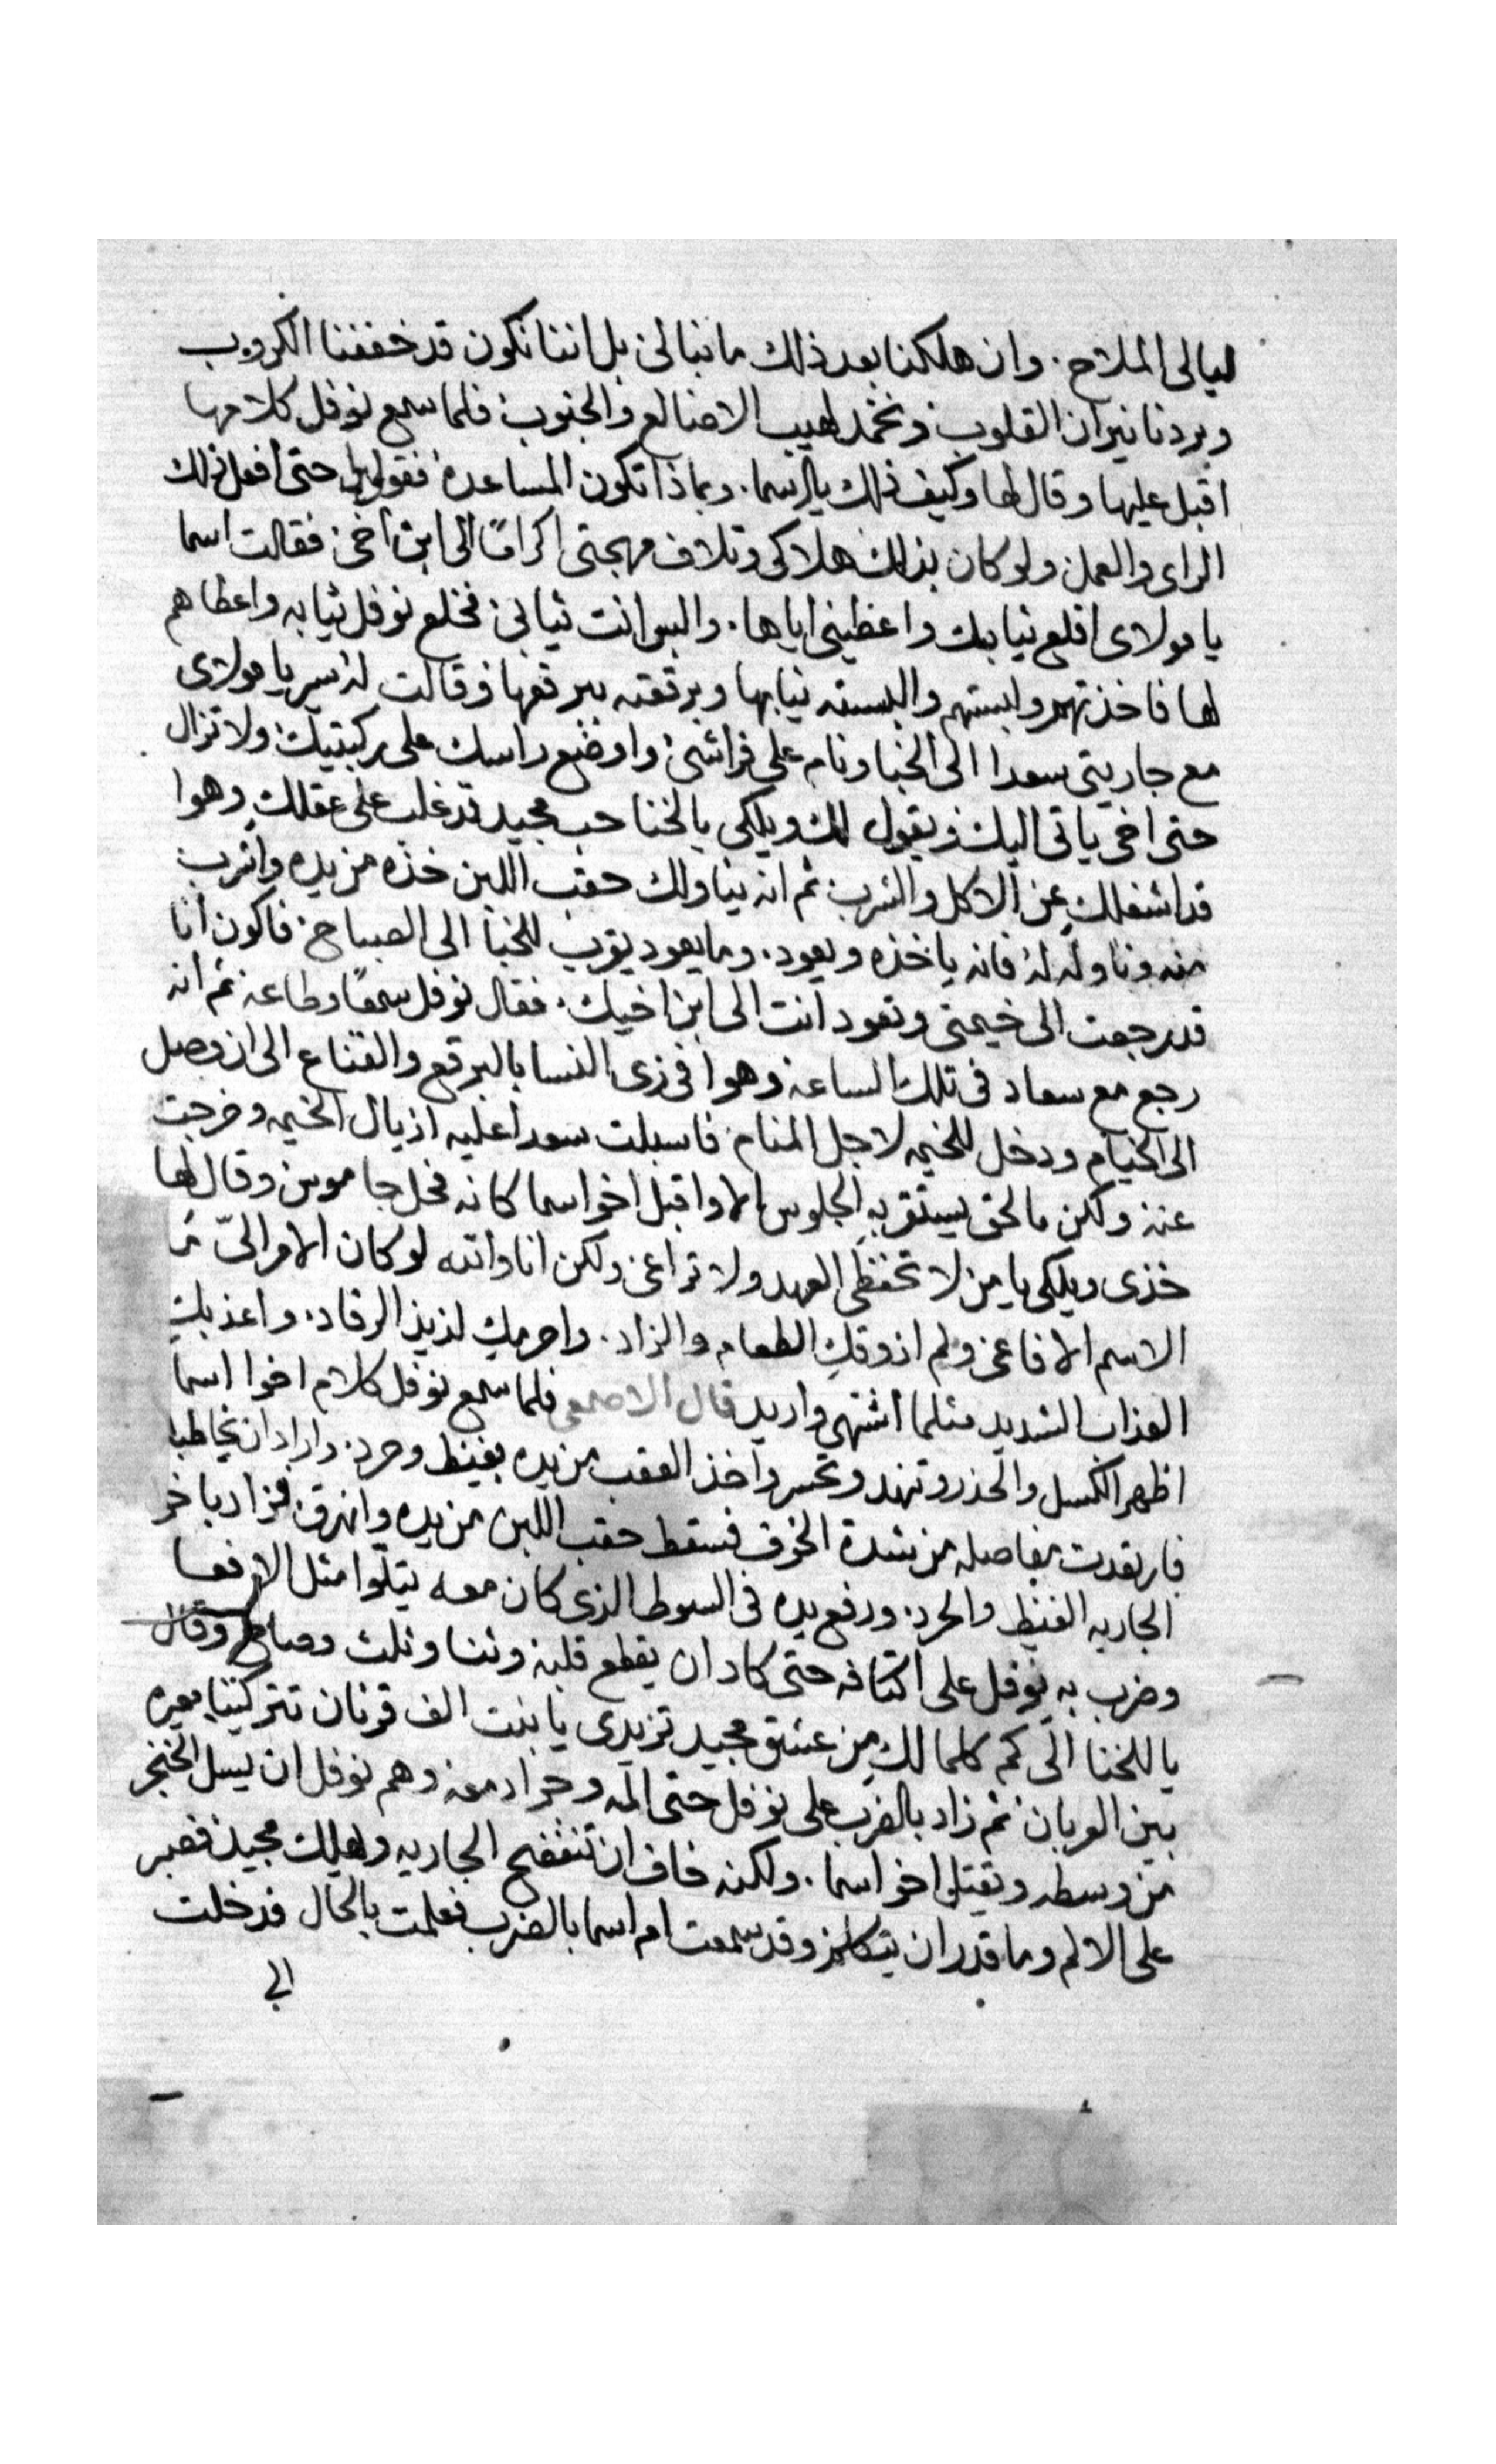 ليالى الملاح. وان هلكنا بعد ذلك ما نبالى بل اننا نكون قد خففنا الكروب
وبردنا نيران القلوب ونخمد لهيب الاضالع والجنوب فلما سمع نوفل كلامها
اقبل عليها وقال لها وكيف ذلك يا اسما. وبماذا تكون المساعده فقولى لى حتى افعل ذلك
الراى والعمل ولو كان بذلك هلاكى وتلاف مهجتى اكرامًا الى ابن اخى فقالت اسما
يا مولاى اقلع ثيابك واعطينى اياها. والبس انت ثيابى فخلع نوفل ثيابه واعطاهم
لها فاخذتهم ولبستهم والبسته ثيابها وبرقعته ببرقعها وقالت له سير يا مولاى
مع جاريتى سعدا الى الخبا ونام على فراشى واوضع راسك على ركبتيك ولا تزال
حتى اخى ياتى اليك ويقول لك ويلكى يا لخنا حب مجيد قد غلب على عقلك وهوا
قد اشغلك عن الاكل والشرب ثم انه يناولك حقب اللبن خذه من يده واشرب
منه وناوله له فانه ياخذه ويعود. وما يعود يقرب للخبا الى الصباح فاكون انا
قد رجعت الى خيمتى وتعود انت الى ابن اخيك. فقال نوفل سمعًا وطاعه ثم انه
رجع مع سعاد فى تلك الساعه وهوا فى زى النسا بالبرقع والقناع الى ان وصل
الى الخيام ودخل للخيمه لاجل المنام فاسبلت سعدا عليه اذيال الخيمه وخرجت
عنه ولكن ما لحق يستقر به الجلوس الا واقبل اخو اسما كانه فحل جاموس وقال لها
خذى ويلكى يا من لا تحفظى العهد ولا تراعى ولكن انا والله لو كان الامر الىّ
الاسم الافاعى ولم اذوقكِ الطعام والزاد. واحرمكِ لذيذ الرقاد. واعذبكِ
العذاب الشديد مثلما اشتهى واريد قال الاصمعى فلما سمع نوفل كلام اخوا اسما
اظهر الكسل والحذر وتنهد وتحسر واخذ العقب من يده بغيظ وحرد. واراد ان يخاطبه
فارتعدت مفاصله من شدة الخوف فسقط حقب اللبن من يده وانهرق فزاد باخو
الجاريه الغيظ والحرد. ورفع يده فى السوط الذى كان معه يتلوا مثل الافعا
وضرب به نوفل على اكتافه حتى كاد ان يقطع قلبه وثنا وثلث وصاح وقال
يا للخنا الى كم كلما لكِ من عشق مجيد تزيدى يا بنت الف قرنان تتركينا معيره
بين العربان ثم زاد بالضرب على نوفل حتى المه وحراد معه وهم نوفل ان يسل الخنجر
من وسطه ويقتل اخو اسما. ولكنه خاف ان تنفضح الجاريه ويهلك مجيد فصبر
على الالم وما قدر ان يتكلم وقد سمعت ام اسما بالضرب فعلمت بالحال فدخلت
الى